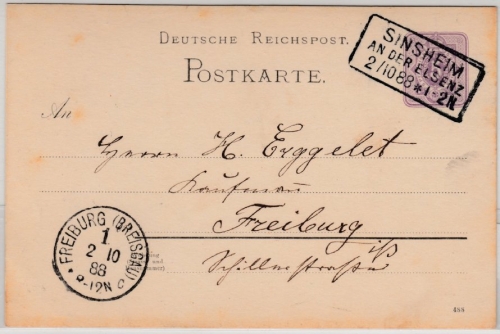 DEUTSCHE REICHSPOST.
POSTKARTE.
SINSHEIM
AN DER ELSENZ
2/10 88 * 1-2N
An
Herrn H. Erggelet
Kaufmann
Freiburg
i/B
Schillerstraße
FREIBURG (BREISGAU)
1
2 10
88
9-12N
488